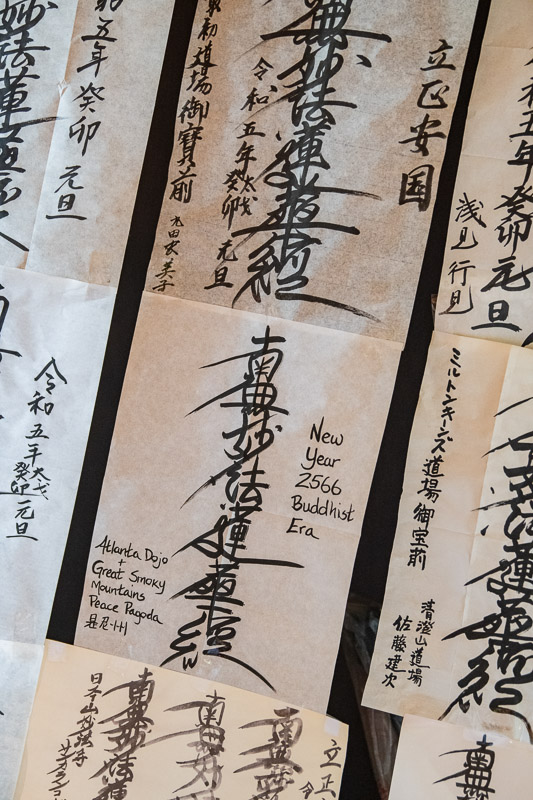 妙法蓮華
五年癸卯 元旦
最初道場御寶前
令和五年癸卯 元旦
無妙法蓮華経
立正安国
五年癸卯元旦
浅見 行見
令和五年
癸卯元旦
南無妙法蓮華経
New
Year
2566
Buddhist
Era
Atlanta Dojo
+
Great Smoky
Mountains
Peace Pagoda
ミルトンキーンズ道場御宝前
清澄山道場
佐藤建次
法蓮華経
日本山妙法寺
南無妙法蓮
南無妙
南無妙法
立正
令
南無